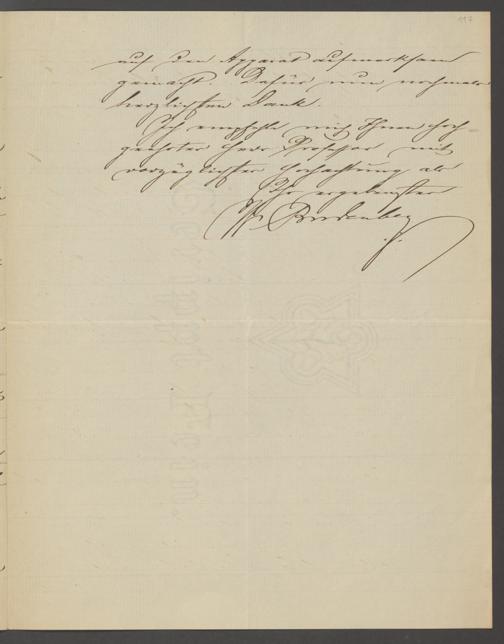 117
auf den Apparat aufmerksam
gemacht. Dafür nun nochmals
herzlichsten Dank.
Ich empfehle mich Ihnen hoch-
geehrter Herr Professor mit
vorzüglichster Hochachtung als
Ihr ergebenster